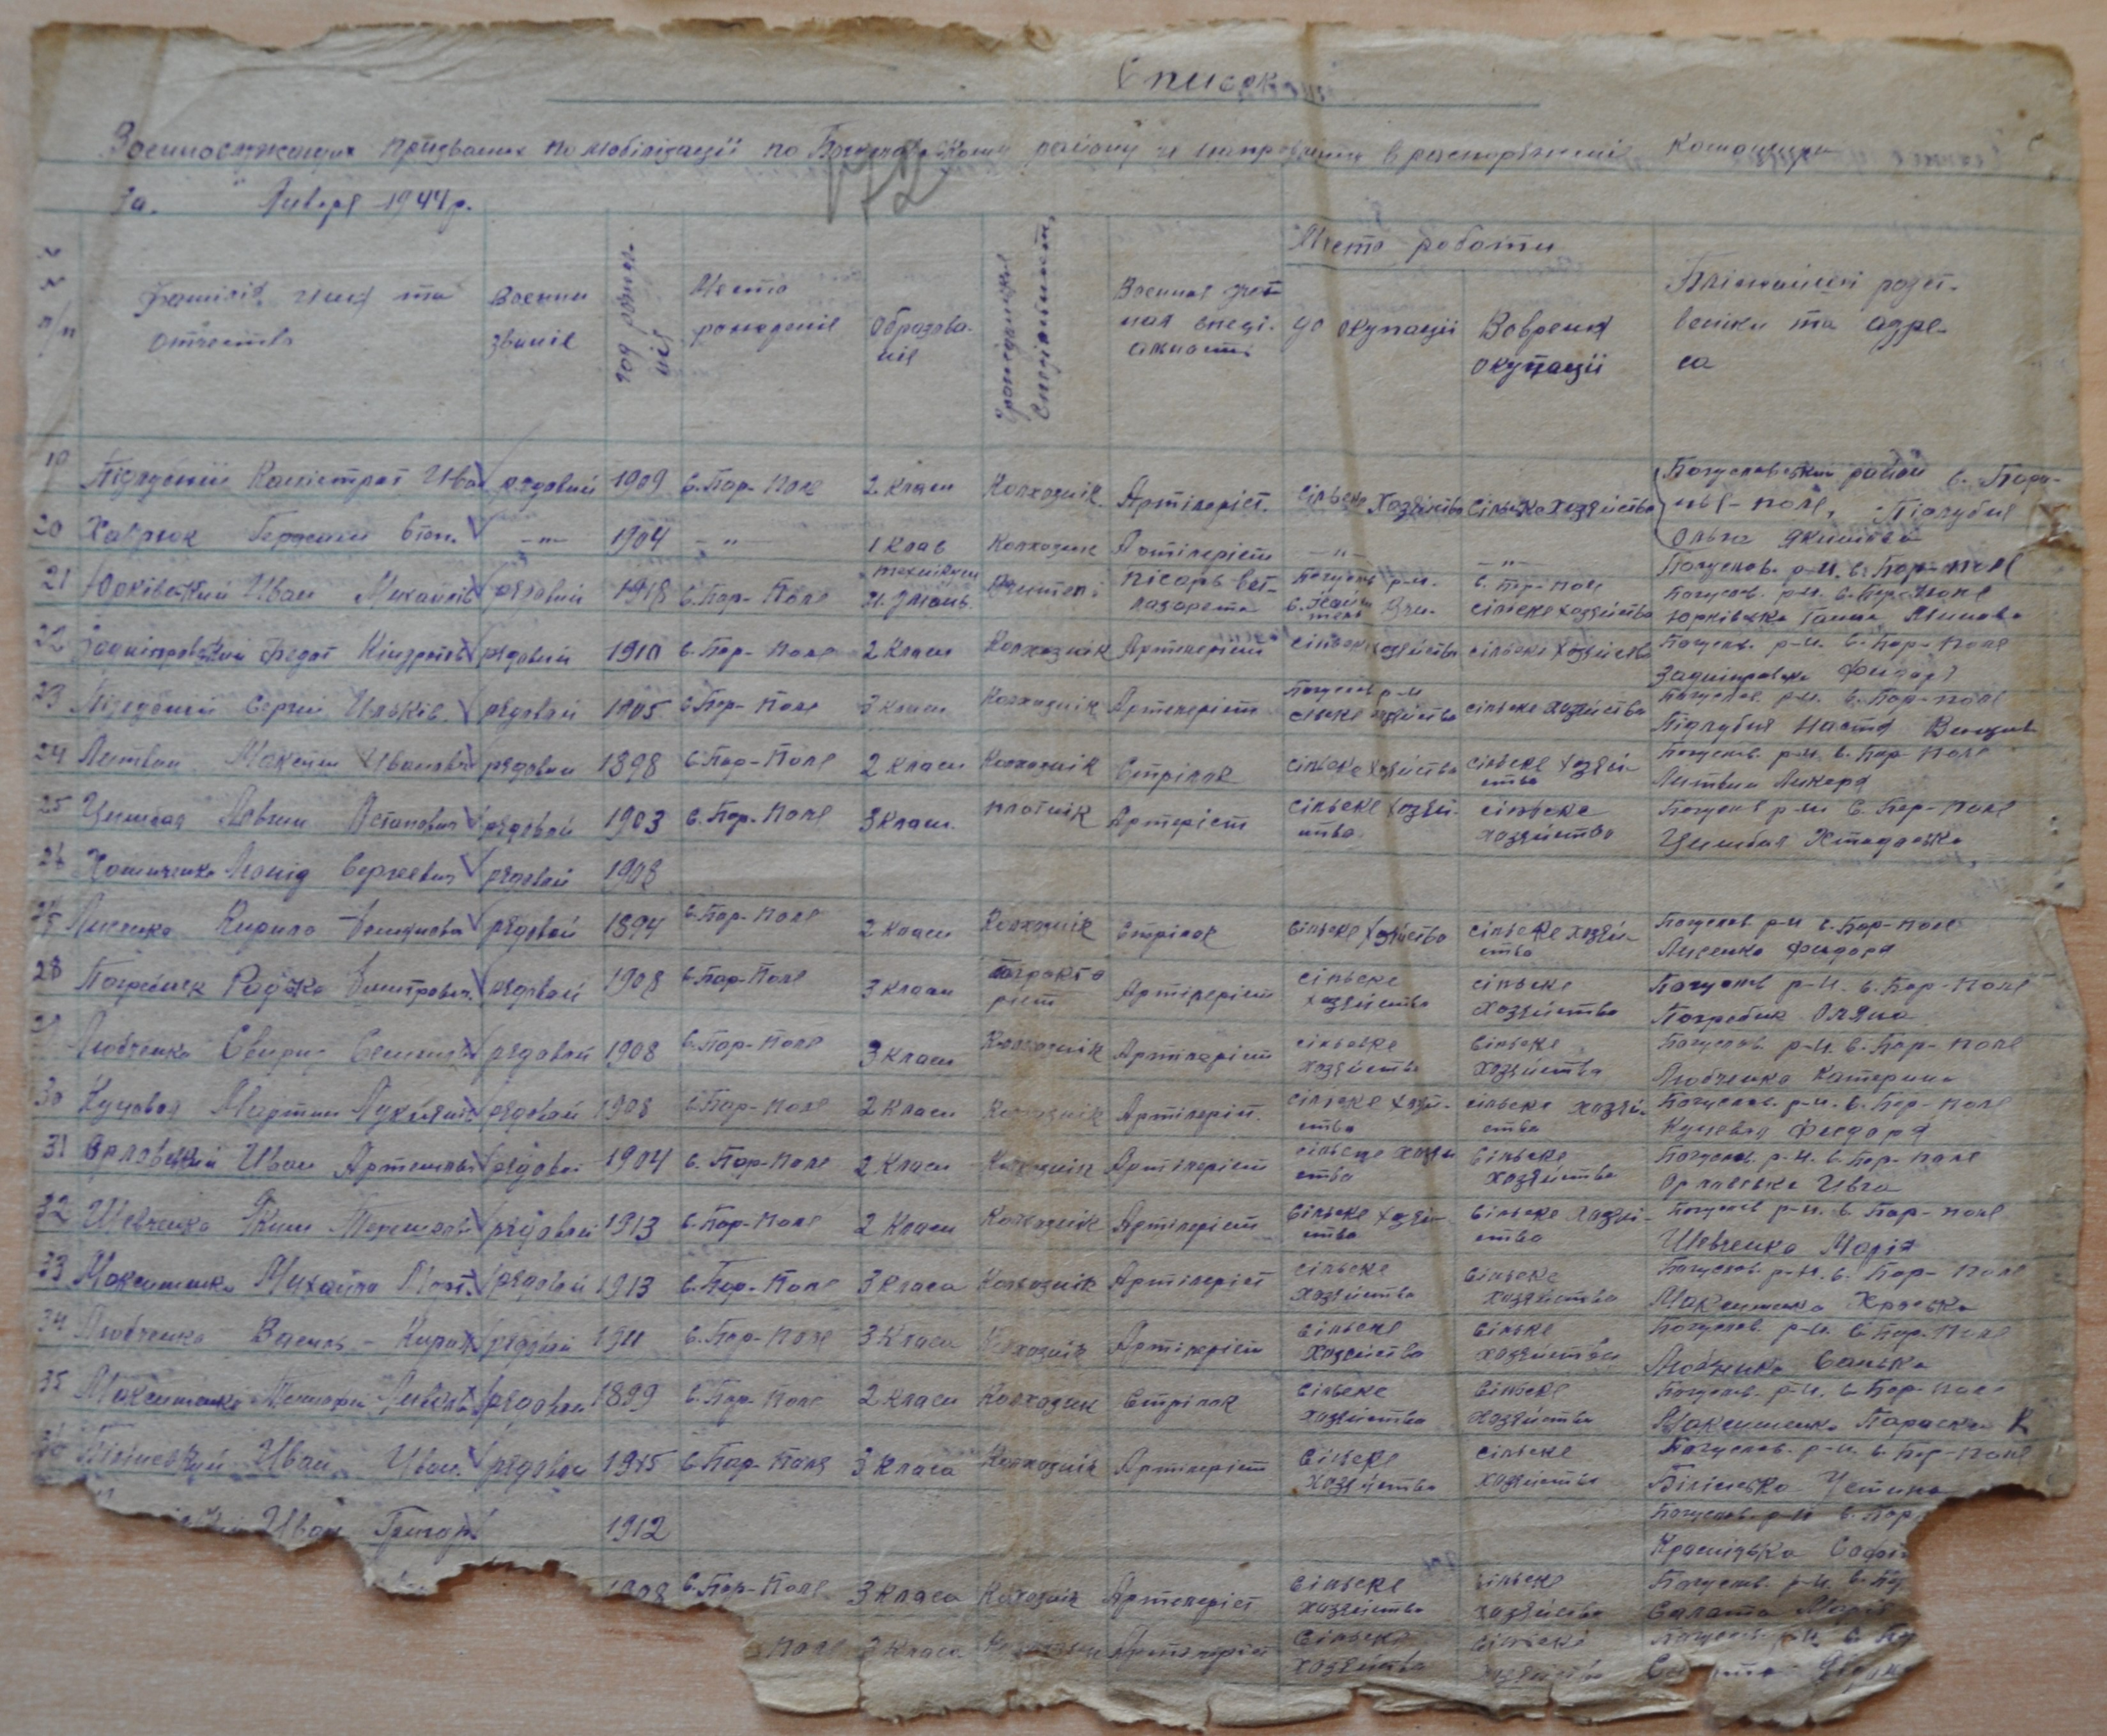 Список
Военнослужащих призваных по мобілізації по району и направлении в распоряжениі командира
За " Января 1944 р.
172
№ п/п
Фамилія, имя та отчество
Военни звание
год рожден. ния
Место рождения
Образова- ние
Гражданская специальност.
Военная учот- ная специ- альность
Место роботи
до окупации
Вовремя окупации
Ближайши родст- веники та адре- са
19 Підгубний Калістрат Ива рядовий 1909 с. Бар-Поле 2 класи Колхозник Артилерист. сільске хозяйство сільске хозяйство Богуславський район с. Бара- нье-поле, Підгубня Ольга Якимовна
20 Хаврюк Герасим Степ. —"— 1904 —"— 1 клас Колхозник Артилерист —"— —"— Богуслав. р-н. с. Бар-поле
21 Юрківский Иван Михайлов рядовий 1918 с. Бар-Поле технікум Учитель писарь вет- лазарета Богуслав р-н. с. Бар-поле сільске хозяйство Богуслав. р-н. с. Бар-Поле Юрківска Ганна
22 Задніпровский Федот Кіндратов рядовий 1910 с. Бар-Поле 2 класи Колхозник Артилерист сільске хозяйство сільске хозяйство Богуслав. р-н. с. Бар-Поле Задніпровска Фидора
23 Підгубний Сергий Ильков. рядовий 1905 с. Бар-Поле 3 класи Колхозник Артилерист Богуслав р-н сільске хозяйство сільске хозяйство Богуслав. р-н. с. Бар-поле Підгубня Настя
24 Литвин Максим Иванович рядовий 1898 с. Бар-Поле 2 класи Колхозник Стрілок сільске хозяйство сільске хозяй- ство Богуслав. р-н. с. Бар-Поле Литвин Ликера
25 Цимбал Левтин Остапович рядовой 1903 с. Бар-Поле 3 класи. плотник Артилерист сільске хозяй- ство сільске хозяйство Богуслав р-н с. Бар-Поле Цимбал
26 Хоменченко Леонід Сергеевич рядовой 1908
27 Лисенко Кирило Демянович рядовой 1894 с. Бар-Поле 2 класи Колхозник Стрілок сільске хозяйство сільске хозяй- ство Богуслав. р-н с. Бар-Поле Лисенко Фидора
28 Погребняк Радько Дмитрович. рядовой 1908 с. Бар-Поле 3 класи тракто- рист Артилерист сільске хозяйство сільске хозяйство Богуслав р-н. с. Бар-Поле Погребняк Оляна
29 Любченко Свирид Семенович рядовой 1908 с. Бар-Поле 3 класи Колхозник Артилерист сільске хозяйство сільске хозяйство Богуслав. р-н. с. Бар-Поле Любченко Катерина
30 Куцевол Мартин Лукъянов рядовой 1908 с. Бар-Поле 2 класи Колхозник Артилерист. сільске хозяй- ство сільске хозяй- ство Богуслав. р-н. с. Бар-Поле Куцевол Фидора
31 Орловский Иван Артемович рядовой 1904 с. Бар-Поле 2 класи Колхозник Артилерист сільске хозяй ство сільске хозяйство Богуслав. р-н. с. Бар-Поле Орловська Ивга
32 Шевченко Яким Терешков рядовой 1913 с. Бар-Поле 2 класи Колхозник Артилерист сільске хозяй- ство сільске хозяй- ство Богуслав р-н. с. Бар-поле Шевченко Марія
33 Максименко Михайло рядовой 1913 с. Бар-Поле 3 класа Колхозник Артилерист сільске хозяйство сільске хозяйство Богуслав. р-н. с. Бар-Поле Максименко Хриська
34 Любченко Василь Кирил рядовий 1911 с. Бар-Поле 3 класи Колхозник Артилерист сільске хозяйство сільске хозяйства Богуслав. р-н. с. Бар-Поле Любченко Санька
35 Максименко рядовой 1899 с. Бар-Поле 2 класи Колхозник Стрілок сільске хозяйство сільске хозяйство Богуслав. р-н. с. Бар-Поле Максименко Параска К
36 Білінский Иван Иван. рядовой 1915 с. Бар-Поле 3 класа Колхозник Артилерист сільске хозяйство сільске хозяйство Богуслав. р-н. с. Бар-Поле Білінська Устина
Иван Григор 1912 Богуслав. р-н с. Бар Красицька Софія
1908 с. Бар-Поле 3 класа Колхозник Артилерист сільске хозяйство сільске хозяйство Богуслав. р-н. с. Ба Салата Марія
Поле 3 класа Колхозник Артилерист сільске хозяйство сільске хозяйство Богуслав. р-н. с. Ба